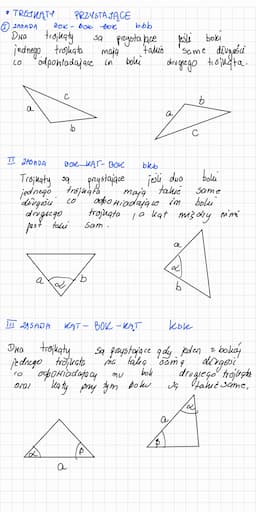 • TRÓJKĄTY PRZYSTAJĄCE
I ZASADA BOK-BOK-BOK bbb
Dwa trójkąty są przystające jeśli boki
jednego trójkąta mają takie same długości
co odpowiadające im boki drugiego trójkąta.
a c b
b a c
II ZASADA BOK-KĄT-BOK bkb
Trójkąty są przystające jeśli dwa boki
jednego trójkąta mają takie same
długości co odpowiadające im boki
drugiego trójkąta, a kąt między nimi
jest taki sam.
a α b
a α b
III ZASADA KĄT-BOK-KĄT kbk
Dwa trójkąty są przystające gdy jeden z boków
jednego trójkąta ma taką samą długość
co odpowiadający mu bok drugiego trójkąta
oraz kąty przy tym boku są takie same.
α β
a
α a β